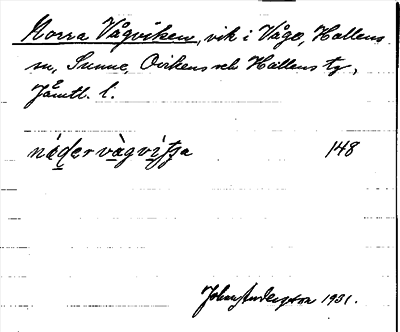 Norra Vågviken, vik i Våge, Hallens
sn, Sunne, Ovikens och Hallens tg,
Jämtl. l.
nóder vàgvìtʃa 148
John Anderson 1931.